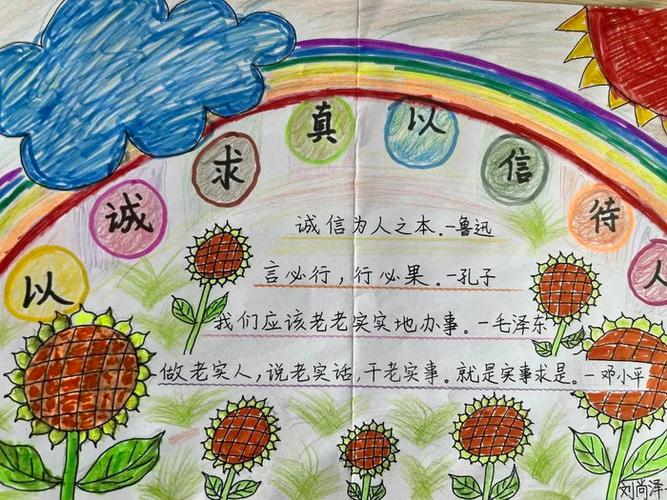 以诚求真以信待人
诚信为人之本.一鲁迅
言必行，行必果。一孔子
我们应该老老实实地办事。一毛泽东
做老实人，说老实话，干老实事。就是实事求是。一邓小平
刘尚泽